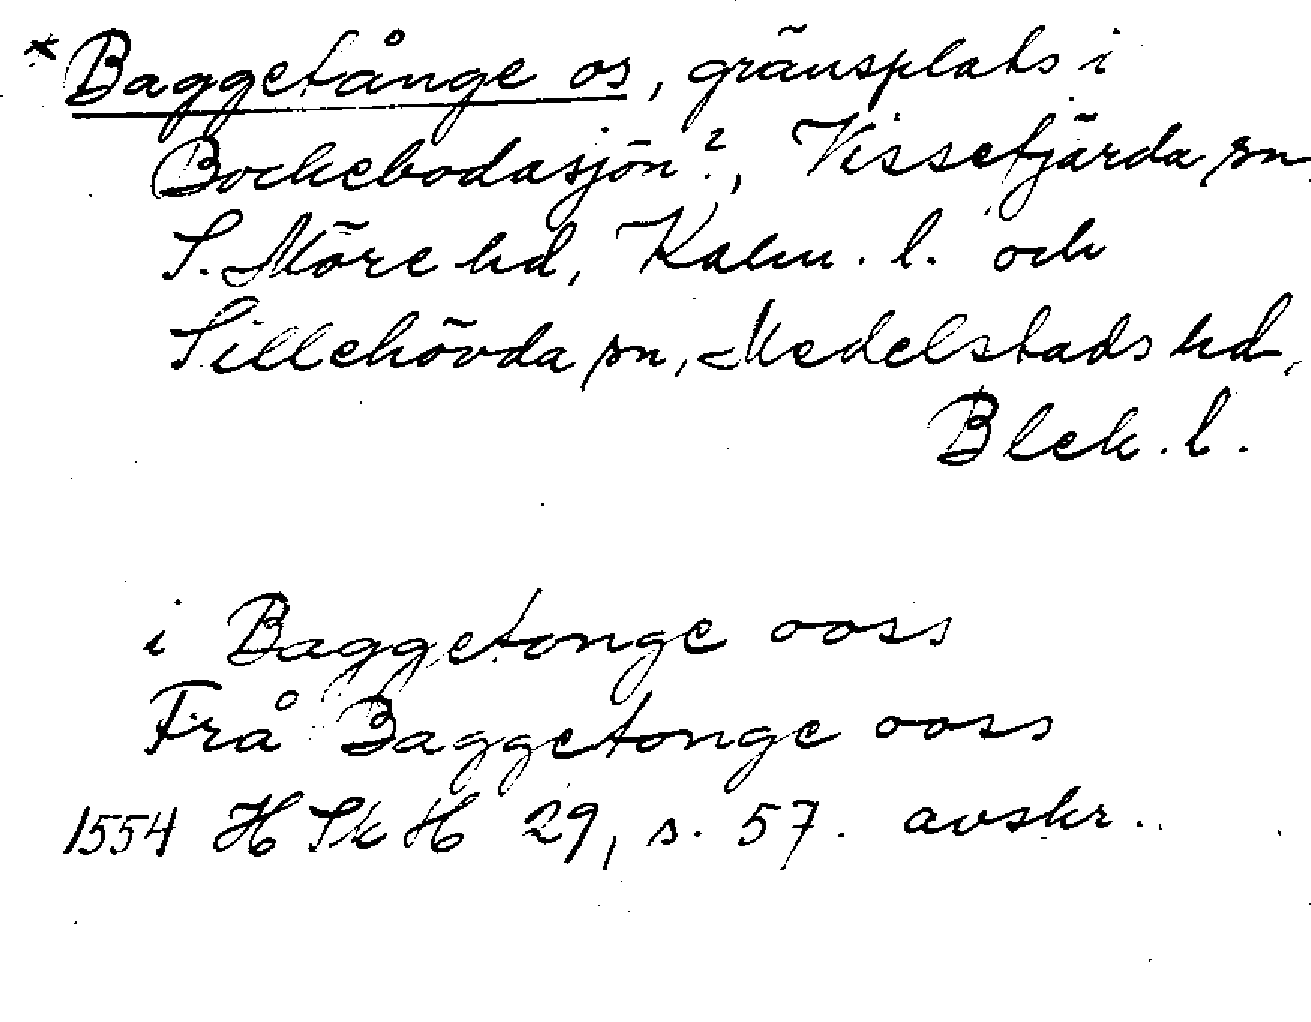 *Baggetånge os, gränsplats i
Bockebodasjön?, Vissefjärda sn,
S. Möre hd, Kalm. l. och
Sillehövda sn, Medelstads hd,
Blek. l.
i Baggetonge ooss
Frå Baggetonge ooss
1554 HSkH 29, s. 57. avskr.